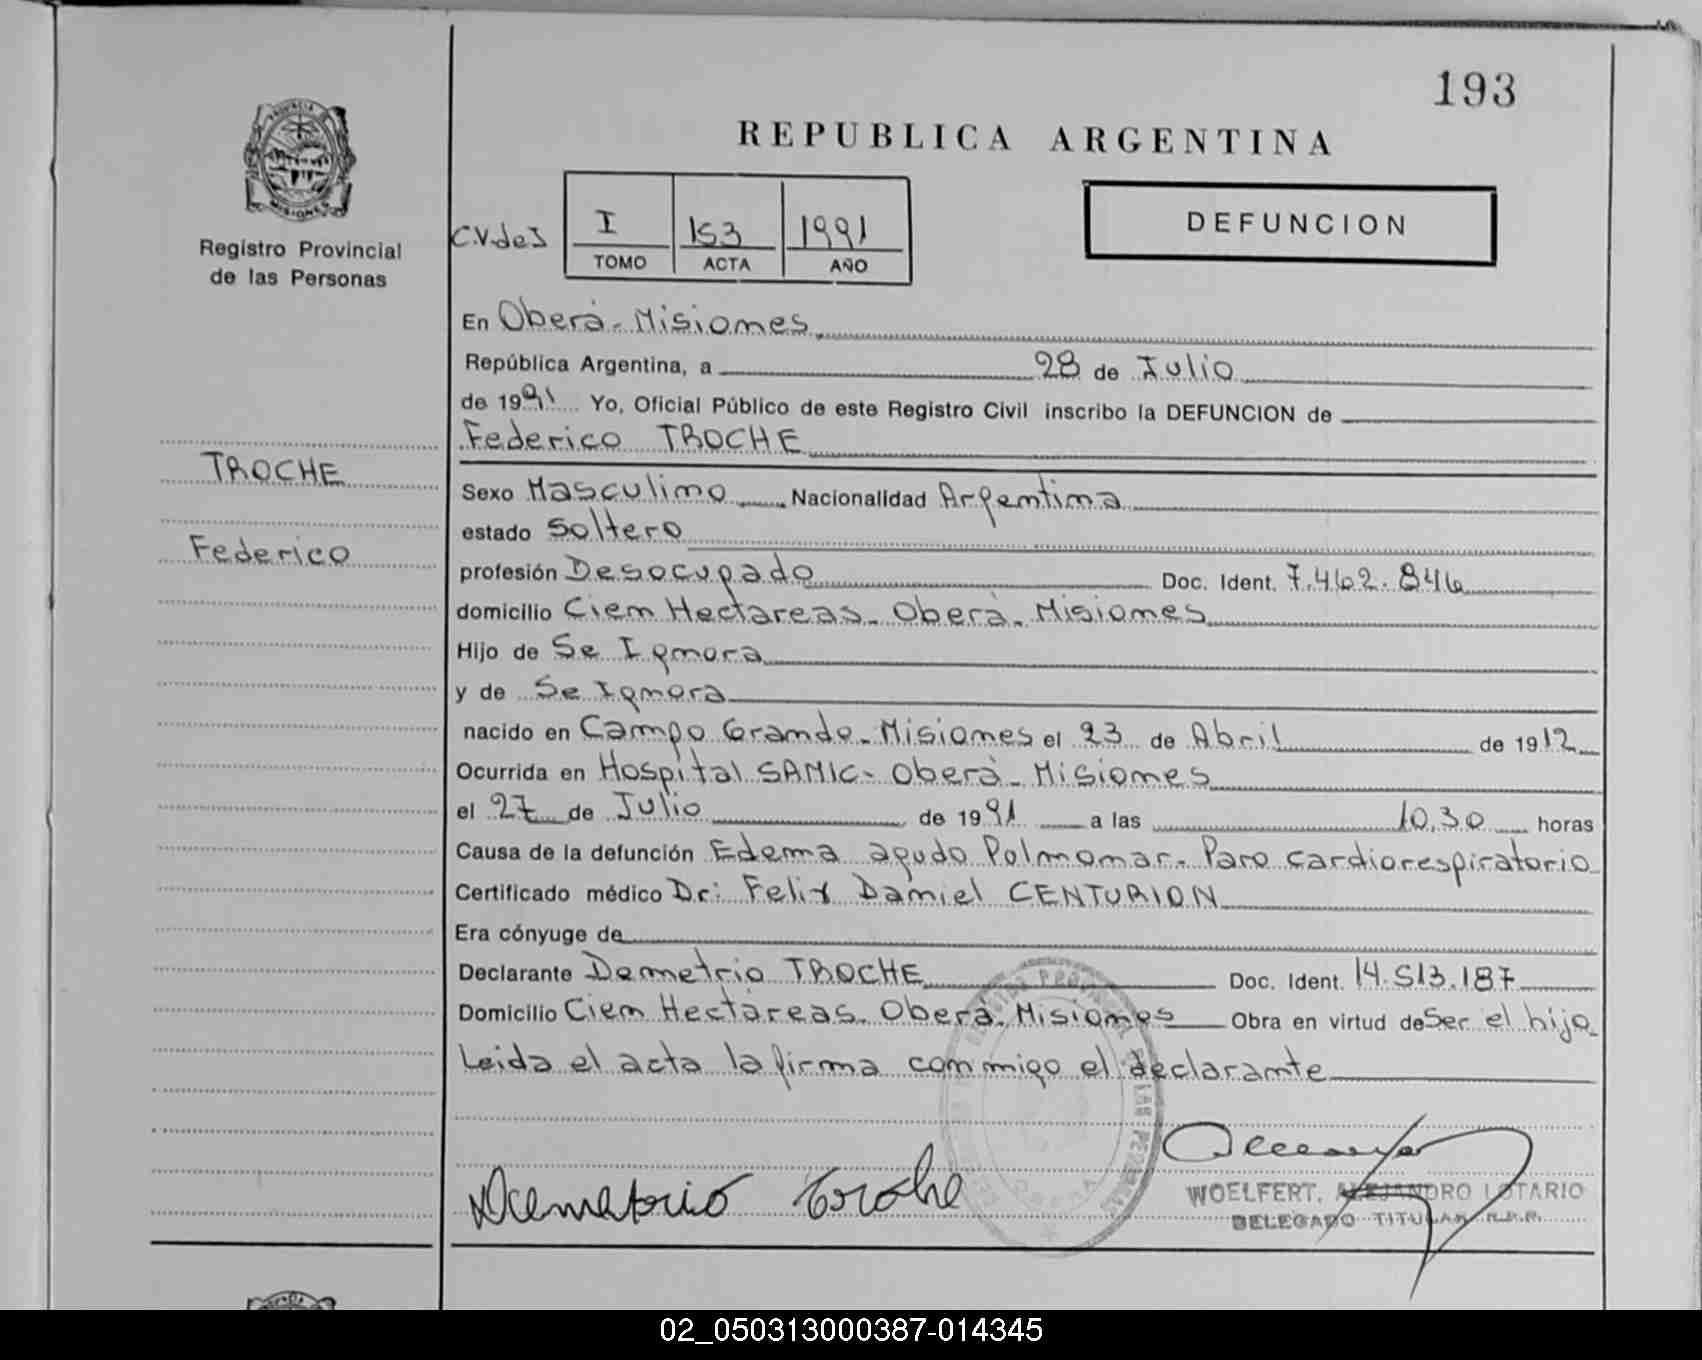 193
REPUBLICA ARGENTINA
PROVINCIA
MISIONES
Registro Provincial
de las Personas
C.V.deJ
I 153 1991
TOMO ACTA AÑO
DEFUNCION
En Oberá - Misiones
República Argentina, a 28 de Julio
de 1991 Yo, Oficial Público de este Registro Civil inscribo la DEFUNCION de
Federico TROCHE
TROCHE
Federico
Sexo Masculino Nacionalidad Argentina
estado Soltero
profesión Desocupado Doc. Ident. 7.462.846
domicilio Cien Hectareas - Oberá - Misiones
Hijo de Se Ignora
y de Se Ignora
nacido en Campo Grande - Misiones el 23 de Abril de 1912
Ocurrida en Hospital SAMIC - Oberá - Misiones
el 27 de Julio de 1991 a las 10,30 horas
Causa de la defunción Edema agudo Polmonar - Paro cardiorespiratorio
Certificado médico Dr: Felix Daniel CENTURION
Era cónyuge de
Declarante Demetrio TROCHE Doc. Ident. 14.513.187
Domicilio Cien Hectáreas - Oberá - Misiones Obra en virtud de Ser el hijo
Leida el acta la firma conmigo el declarante
Demetrio Troche
WOELFERT, ALEJANDRO LOTARIO
DELEGADO TITULAR R.P.P.
02_050313000387-014345